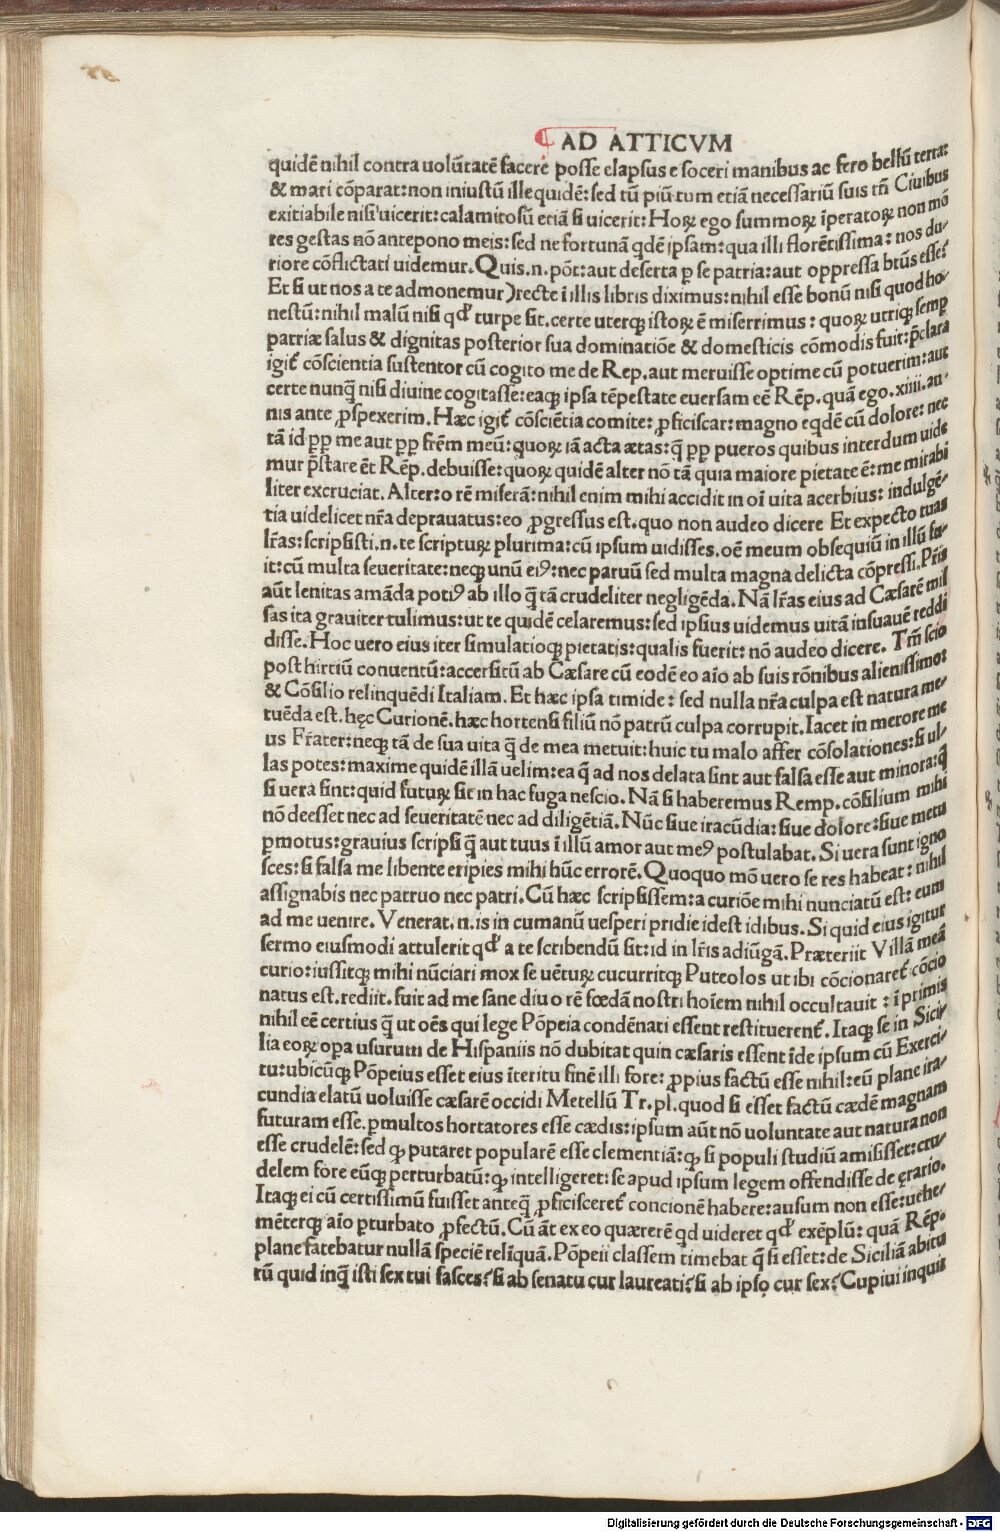 AD ATTICVM
quidē nihil contra uolūtatē facere posse elapsus e soceri manibus ac fero bellū terra:
& mari cōparat: non iniustū ille quidē: sed tū piū tum etiā necessariū suis tñ Ciuibus
exitiabile nisi uicerit: calamitosū etiā si uicerit: Hoꝝ ego summoꝝ īperatoꝝ non mō
res gestas nō antepono meis: sed ne fortunā qdē ipsam: qua illi florētissima: nos du-
riore cōflictati uidemur. Quis .n. pōt: aut deserta p se patria: aut oppressa btūs esse?
Et si ut nos a te admonemur) recte ī illis libris diximus: nihil esse bonū nisi quod ho-
nestū: nihil malū nisi qđ turpe sit. certe uterqꝫ istoꝝ ē miserrimus: quoꝝ utriqꝫ semꝑ
patriæ salus & dignitas posterior sua dominatiōe & domesticis cōmodis fuit: p̄clara
igit᷑ cōscientia sustentor cū cogito me de Rep. aut meruisse optime cū potuerim: aut
certe nunq̄ nisi diuine cogitasse: eaqꝫ ipsa tēpestate euersam eē Rēp. quā ego .xiiii. an-
nis ante ꝓspexerim. Hæc igit᷑ cōsciētia comite: ꝓficiscar: magno eqdē cū dolore: nec
tā id pp̱ me aut pp̱ frēm meū: quoꝝ iā acta ætas: q̄ pp̱ pueros quibus interdum uide
mur p̄stare ēt Rēp. debuisse: quoꝝ quidē alter nō tā quia maiore pietate ē: me mirabi
liter excruciat. Alter: o rē miserā: nihil enim mihi accidit in oī uita acerbius: indulgē-
tia uidelicet nr̄a deprauatus: eo ꝓgressus est. quo non audeo dicere Et expecto tuas
lr̄as: scripsisti .n. te scripturꝝ plurima: cū ipsum uidisses. oē meum obsequiū in illū fu-
it: cū multa seueritate: neqꝫ unū eiꝰ: nec paruū sed multa magna delicta cōpressi. Pr̄is
aūt lenitas amāda potiꝰ ab illo q̄ tā crudeliter negligēda. Nā lr̄as eius ad Cæsarē mis
sas ita grauiter tulimus: ut te quidē celaremus: sed ipsius uidemus uitā insuauē reddi
disse. Hoc uero eius iter simulatioqꝫ pietatis: qualis fuerit: nō audeo dicere. Tm̄ scio
post hirtiū conuentū: accersitū ab Cæsare cū eodē eo aīo ab suis rōnibus alienissimo:
& Cōsilio relinquēdi Italiam. Et hæc ipsa timide: sed nulla nr̄a culpa est natura me-
tuēda est. hęc Curionē. hæc hortensi filiū nō patrū culpa corrupit. Iacet in merore me
us Fr̄ater: neqꝫ tā de sua uita q̄ de mea metuit: huic tu malo affer cōsolationes: si ul-
las potes: maxime quidē illā uelim: ea q̄ ad nos delata sint aut falsa esse aut minora: q̄
si uera sint: quid futurꝝ sit in hac fuga nescio. Nā si haberemus Remp. cōsilium mihi
nō deesset nec ad seueritatē nec ad diligētiā. Nūc siue iracūdia: siue dolore: siue metu
ꝑmotus: grauius scripsi q̄ aut tuus ī illū amor aut meꝰ postulabat. Si uera sunt igno
sces: si falsa me libente eripies mihi hūc errorē. Quoquo mō uero se res habeat: nihil
assignabis nec patruo nec patri. Cū hæc scripsissem: a curiōe mihi nunciatū est: eum
ad me uenire. Venerat .n. is in cumanū uesperi pridie idest idibus. Si quid eius igitur
sermo eiusmodi attulerit qđ a te scribendū sit: id in lr̄is adiūgā. Præteriit Villā meā
curio: iussitqꝫ mihi nūciari mox se uēturꝝ cucurritqꝫ Puteolos ut ibi cōcionaret᷑ cōcio
natus est. rediit. fuit ad me sane diu o rē fœdā nostri hoīem nihil occultauit: ī primis
nihil eē certius q̄ ut oēs qui lege Pōpeia condēnati essent restituerent᷑. Itaqꝫ se in Sici-
lia eoꝝ oꝑa usurum de Hispaniis nō dubitat quin cæsaris essent īde ipsum cū Exerci-
tu: ubicūqꝫ Pōpeius esset eius īteritu finē illi fore: ꝓpius factū esse nihil: eū plane ira-
cundia elatū uoluisse cæsarē occidi Metellū Tr. pl. quod si esset factū cædē magnam
futuram esse. ꝑmultos hortatores esse cædis: ipsum aūt nō uoluntate aut natura non
esse crudelē: sed qꝫ putaret popularē esse clementiā: qꝫ si populi studiū amisisset: cru-
delem fore eūqꝫ perturbatū: qꝫ intelligeret: se apud ipsum legem offendisse de ęrario.
Itaqꝫ ei cū certissimū fuisset anteq̄ ꝓficisceret᷑ concionē habere: ausum non esse: uehe-
mēterqꝫ aīo ꝑturbato ꝓfectū. Cū āt ex eo quærerē qd uideret qđ exēplū: quā Rēp.
plane fatebatur nullā speciē relīquā. Pōpeii classem timebat q̄ si esset: de Siciliā abitu
rū quid inq̄ isti sex tui fasces? si ab senatu cur laureati? si ab ipso cur sex? Cupiui inquit
Digitalisierung gefördert durch die Deutsche Forschungsgemeinschaft - DFG